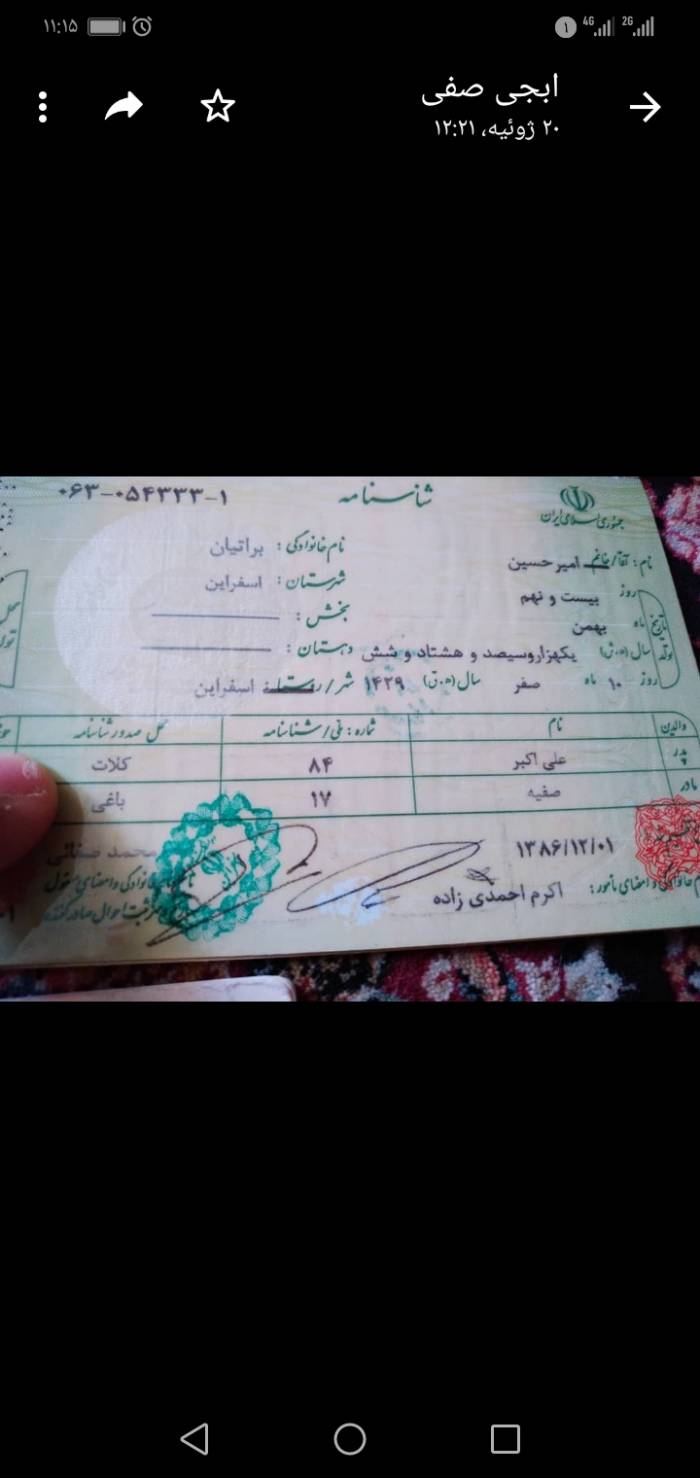 ۱۱:۱۵
۱ 4G 2G
ابجی صفی
۲۰ ژوئیه، ۱۲:۲۱
شناسنامه
۰۶۳-۰۵۴۳۳۳-۱
جمهوری اسلامی ایران
نام: آقا/خانم امیرحسین
نام خانوادگی: براتیان
روز بیست و نهم
شهرستان: اسفراین
ماه بهمن
بخش:
تاریخ تولد
سال (ه.ش) یکهزاروسیصد و هشتاد و شش
دهستان:
روز ۱۰ ماه صفر سال (ه.ق) ۱۴۲۹
شهر/روستا: اسفراین
والدین نام شماره: ملی/شناسنامه محل صدور شناسنامه
پدر علی اکبر ۸۴ کلات
مادر صفیه ۱۷ باغی
۱۳۸۶/۱۲/۰۱
محمد صفائی
خانوادگی و امضای مأمور: اکرم احمدی زاده
نام خانوادگی و امضای مسئول
ثبت احوال صادرکننده